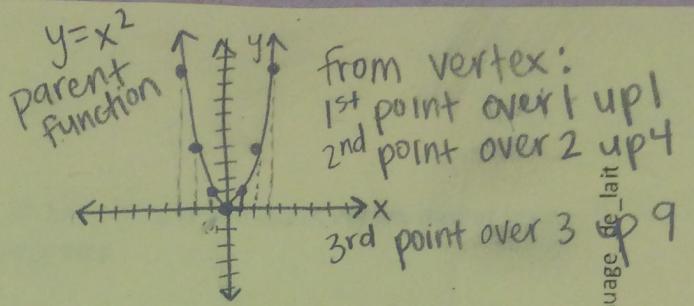 y=x²
parent
function
y
x
from vertex:
1st point over 1 up 1
2nd point over 2 up 4
3rd point over 3 p 9
uage_de_lait